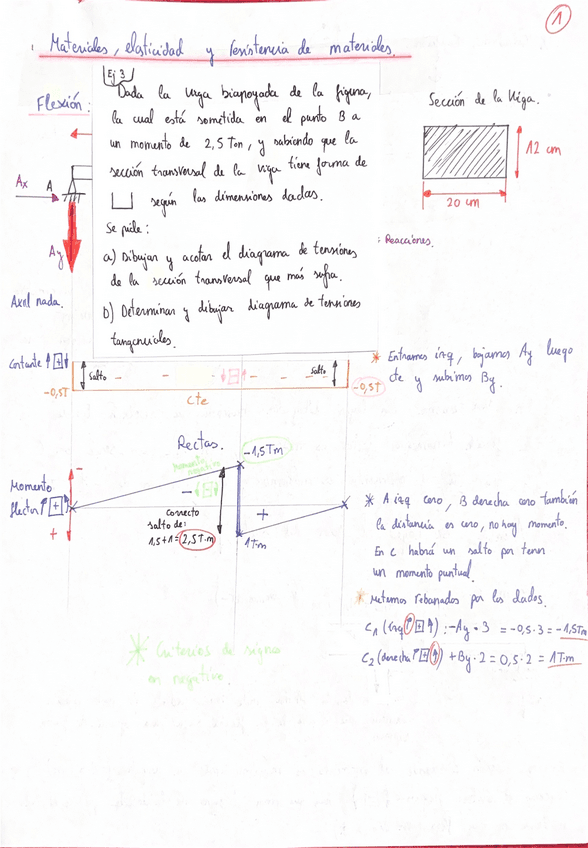 1
Materiales, elasticidad y resistencia de materiales.
Ej 3
Flexión:
Dada la viga biapoyada de la figura,
la cual está sometida en el punto B a
un momento de 2,5 Ton, y sabiendo que la
sección transversal de la viga tiene forma de
según las dimensiones dadas.
Se pide:
a) Dibujar y acotar el diagrama de tensiones
de la sección transversal que más sufra.
b) Determinar y dibujar diagrama de tensiones
tangenciales.
Sección de la Viga.
12 cm
20 cm
Ax
A
Ay
: Reacciones.
Axil nada.
Cortante
+
Salto
- - - - - -
Salto
-0,5T
cte
-0,5T
* Entramos izq, bajamos Ay luego
cte y subimos By.
Rectas.
-1,5Tm
Momento
flector
+
-
+
momento
negativo
-
+
correcto
salto de:
1,5+1=2,5T.m
1T.m
* A izq cero, B derecha cero también
la distancia es cero, no hay momento.
En C habrá un salto por tener
un momento puntual.
* metemos rebanadas por los lados.
C1 (izq +): -Ay · 3 = -0,5·3 = -1,5Tm
C2 (derecha +) +By·2 = 0,5·2 = 1T·m
* Criterios de signos
en negativo.